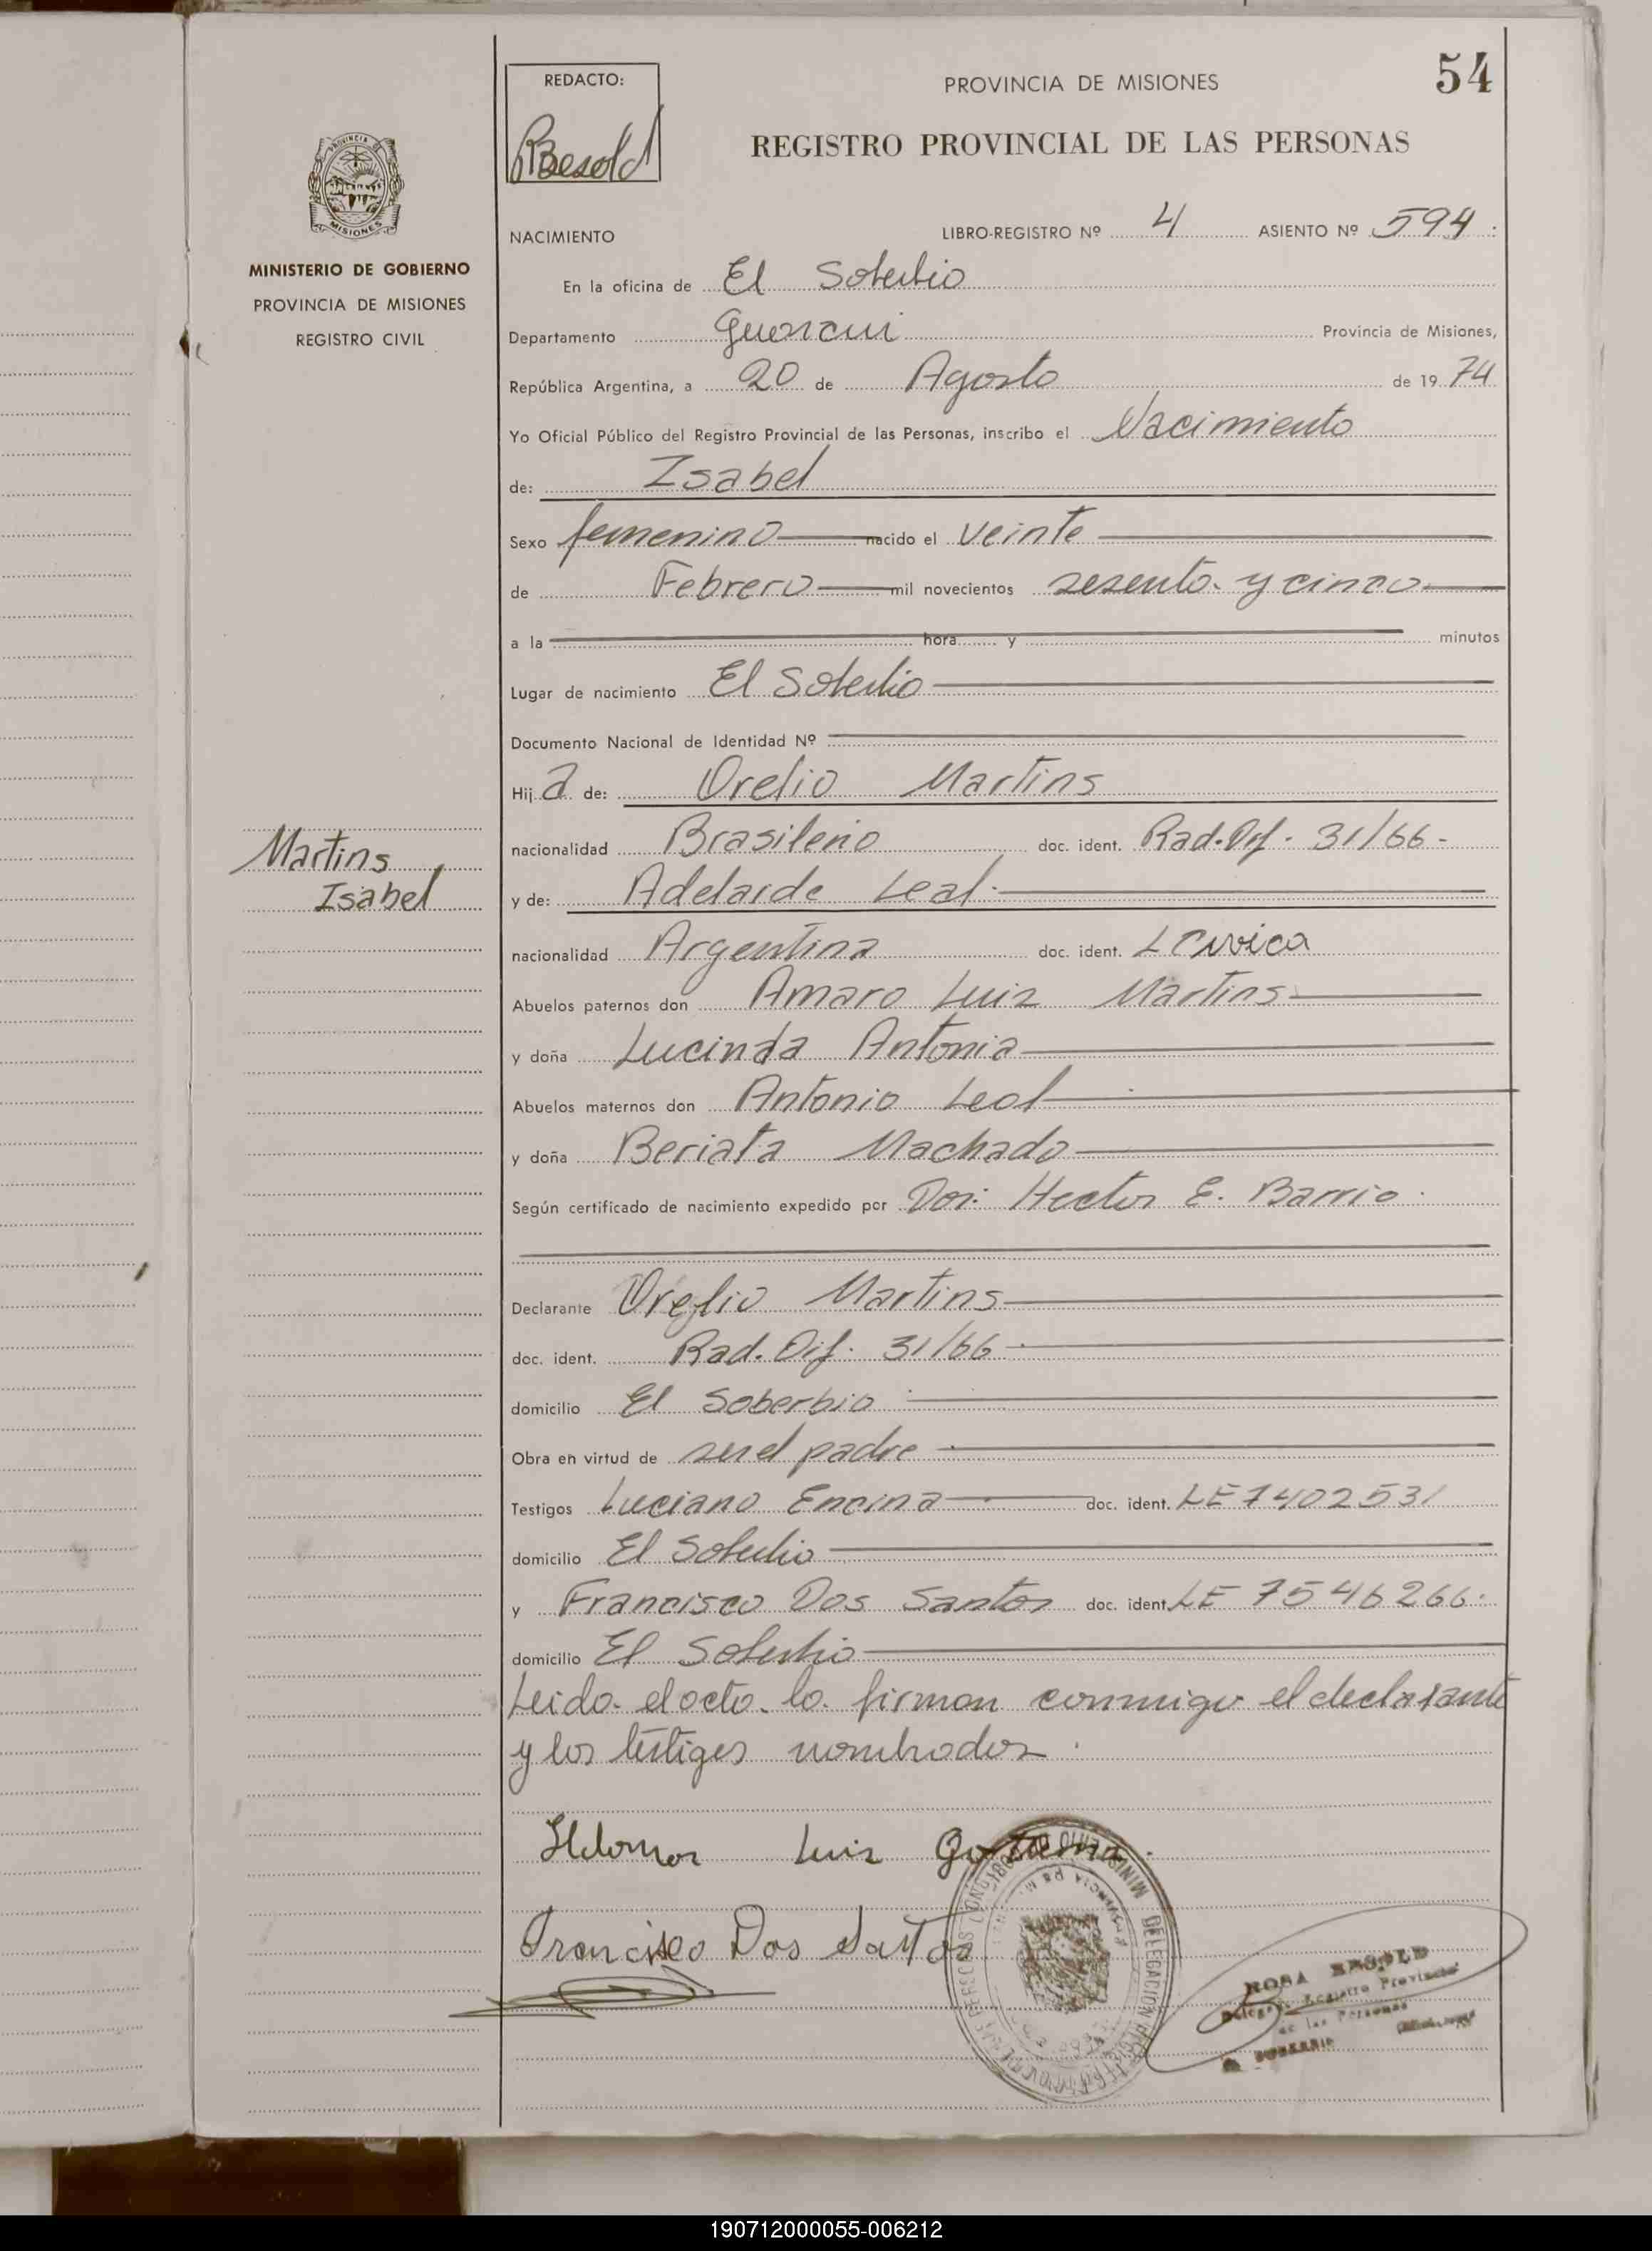 54
REDACTO:
RBesold
PROVINCIA DE MISIONES
REGISTRO PROVINCIAL DE LAS PERSONAS
MISIONES
MINISTERIO DE GOBIERNO
PROVINCIA DE MISIONES
REGISTRO CIVIL
NACIMIENTO LIBRO-REGISTRO Nº 4 ASIENTO Nº 594
En la oficina de El Soberbio
Departamento Guarani Provincia de Misiones,
República Argentina, a 20 de Agosto de 1974
Yo Oficial Público del Registro Provincial de las Personas, inscribo el Nacimiento
de: Isabel
Sexo femenino nacido el veinte
de Febrero mil novecientos sesenta y cinco
a la hora y minutos
Lugar de nacimiento El Soberbio
Documento Nacional de Identidad Nº
Hija de: Orelio Martins
nacionalidad Brasileño doc. ident. Rad. Dif. 31/66-
Martins
Isabel
y de: Adelaide Leal
nacionalidad Argentina doc. ident. L Civica
Abuelos paternos don Amaro Luiz Martins
y doña Lucinda Antonia
Abuelos maternos don Antonio Leal
y doña Beriata Machado
Según certificado de nacimiento expedido por Dor: Hector E. Barrio
Declarante Orelio Martins
doc. ident. Rad. Dif. 31/66
domicilio El Soberbio
Obra en virtud de ser el padre
Testigos Luciano Encina doc. ident. LE 7402531
domicilio El Soberbio
y Francisco Dos Santos doc. ident. LE 7546266.
domicilio El Soberbio
Leido el acto lo firman conmigo el declarante
y los testigos nombrados.
Luiz
Francisco Dos Santos
ROSA BESOLD
Registro Provincial
de las Personas
SOBERBIO
190712000055-006212